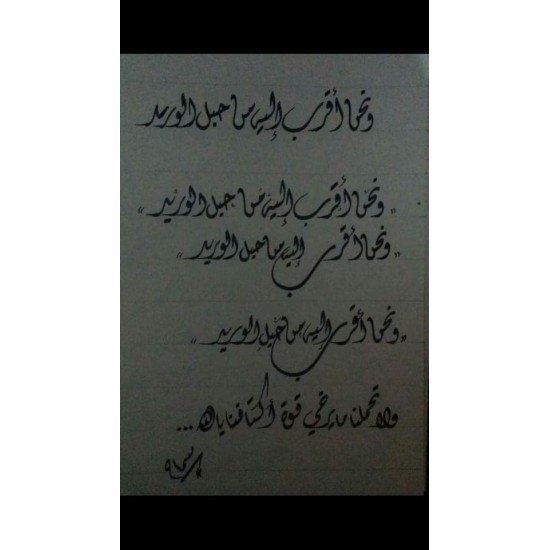 ونحن أقرب إليه من حبل الوريد
"ونحن أقرب إليه من حبل الوريد"
"ونحن أقرب إليه من حبل الوريد"
"ونحن أقرب إليه من حبل الوريد"
ولا تحملنا ما يرخي قوة أكتافنا يا الله...